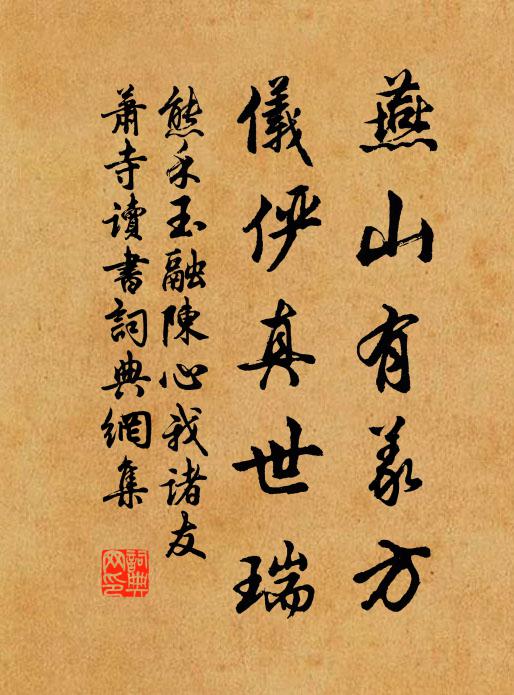 燕山有義方
儀伊真世瑞
熊禾玉融陳心我諸友
蕭寺讀書詞典網集
詞典網印